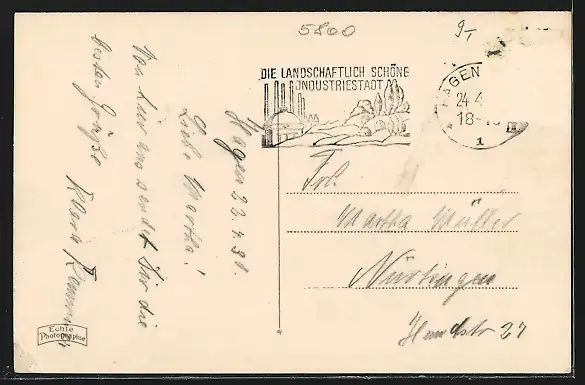 5800
9,-
DIE LANDSCHAFTLICH SCHÖNE
INDUSTRIESTADT
HAGEN
24.4
18-
1
Hagen 22.4.38.
Liebe Martha!
Von hier aus sendet Dir die
besten Grüße Klara
Frl.
Martha Müller
Nürtingen
27
Echte
Photographie